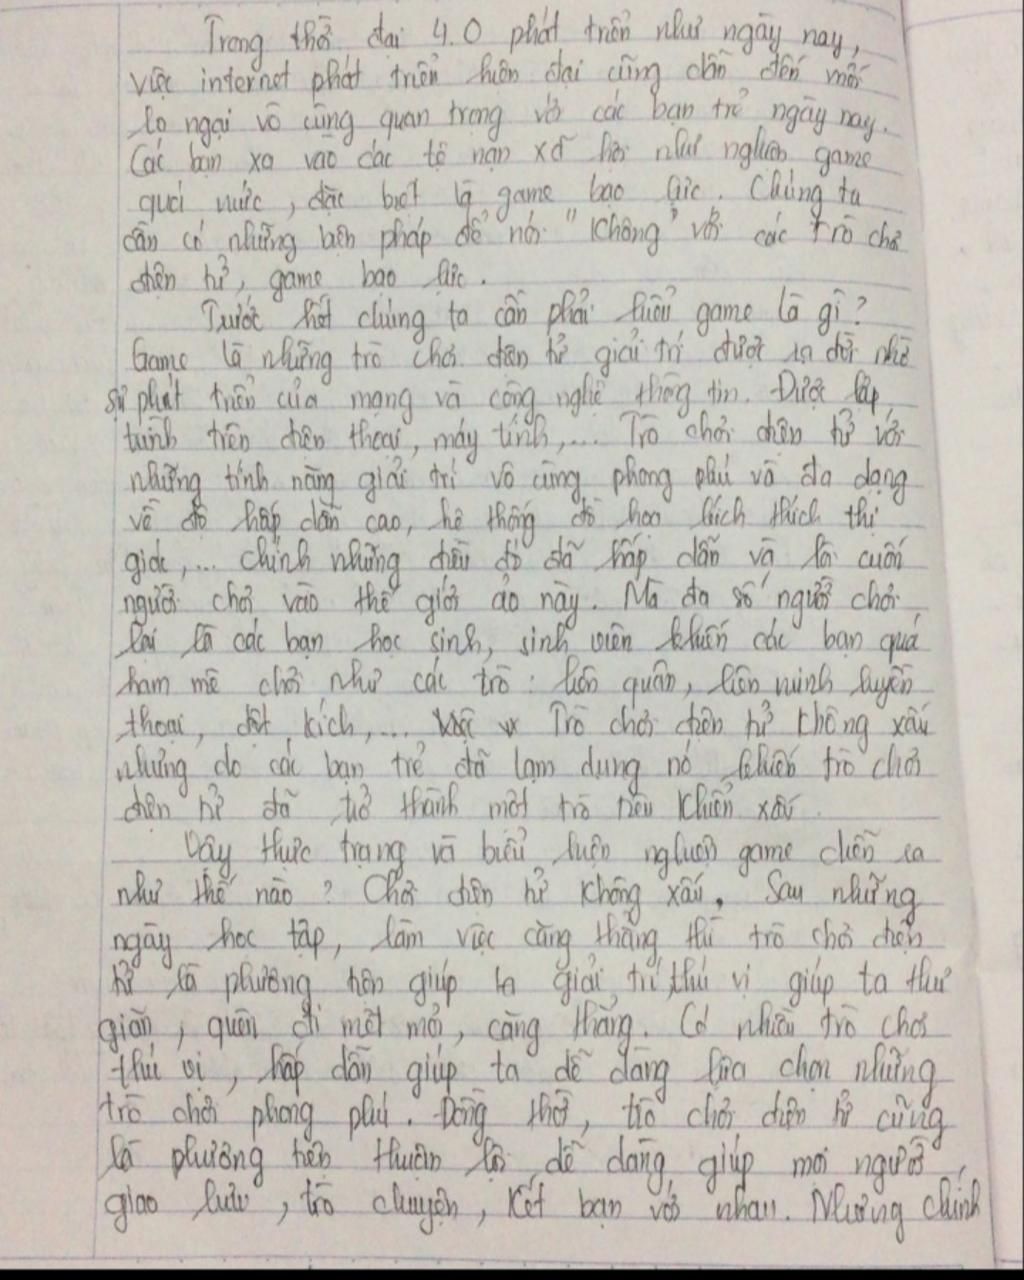 Trong thời đại 4.0 phát triển như ngày nay,
việc internet phát triển hiện đại cũng dẫn đến mối
lo ngại vô cùng quan trọng với các bạn trẻ ngày nay.
Các bạn xa vào các tệ nạn xã hội như nghiện game
quá mức, đặc biệt là game bạo lực. Chúng ta
cần có những biện pháp để nói "Không" với các trò chơi
điện tử, game bạo lực.
Trước hết chúng ta cần phải hiểu game là gì?
Game là những trò chơi điện tử giải trí được ra đời nhờ
sự phát triển của mạng và công nghệ thông tin. Được lập
trình trên điện thoại, máy tính,... Trò chơi điện tử với
những tính năng giải trí vô cùng phong phú và đa dạng
về độ hấp dẫn cao, hệ thống đồ họa kích thích thị
giác,... chính những điều đó đã hấp dẫn và lôi cuốn
người chơi vào thế giới ảo này. Mà đa số người chơi
lại là các bạn học sinh, sinh viên khiến các bạn quá
ham mê chơi như các trò: liên quân, liên minh huyền
thoại, đột kích,... Trò chơi điện tử không xấu
nhưng do các bạn trẻ đã lạm dụng nó khiến trò chơi
điện tử đã trở thành một trò tiêu khiển xấu.
Vậy thực trạng và biểu hiện nghiện game diễn ra
như thế nào? Chơi điện tử không xấu, Sau những
ngày học tập, làm việc căng thẳng thì trò chơi điện
tử là phương tiện giúp ta giải trí thú vị giúp ta thư
giãn, quên đi mệt mỏi, căng thẳng. Có nhiều trò chơi
thú vị, hấp dẫn giúp ta dễ dàng lựa chọn những
trò chơi phong phú. Đồng thời, trò chơi điện tử cũng
là phương tiện thuận lợi dễ dàng giúp mọi người
giao lưu, trò chuyện, kết bạn với nhau. Nhưng chính